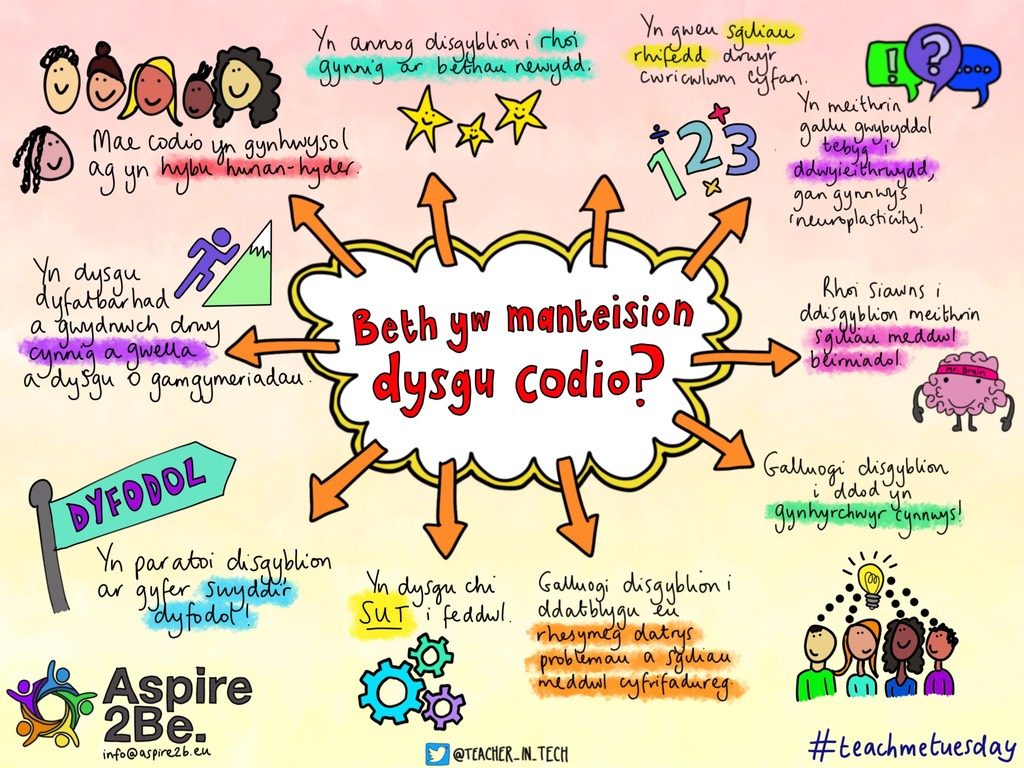 Beth yw manteision
dysgu codio?
Mae codio yn gynhwysol
ag yn hybu hunan-hyder.
Yn annog disgyblion i rhoi
gynnig ar bethau newydd.
Yn gweu sgiliau
rhifedd drwy'r
cwricwlwm cyfan.
123
! ? ....
Yn meithrin
gallu gwybyddol
tebyg i
ddwyieithrwydd,
gan gynnwys
'neuroplasticity'.
Rhoi siawns i
ddisgyblion meithrin
sgiliau meddwl
beirniadol.
Mr. Brain
Galluogi disgyblion
i ddod yn
gynhyrchwyr cynnwys!
Galluogi disgyblion i
ddatblygu eu
rhesymeg datrys
problemau a sgiliau
meddwl cyfrifadureg.
Yn dysgu chi
SUT i feddwl.
DYFODOL
Yn paratoi disgyblion
ar gyfer swyddi'r
dyfodol!
Yn dysgu
dyfalbarhad
a gwydnwch drwy
cynnig a gwella
a dysgu o gamgymeriadau.
Aspire
2Be.
info@aspire2b.eu
@TEACHER_IN_TECH
#teachmetuesday